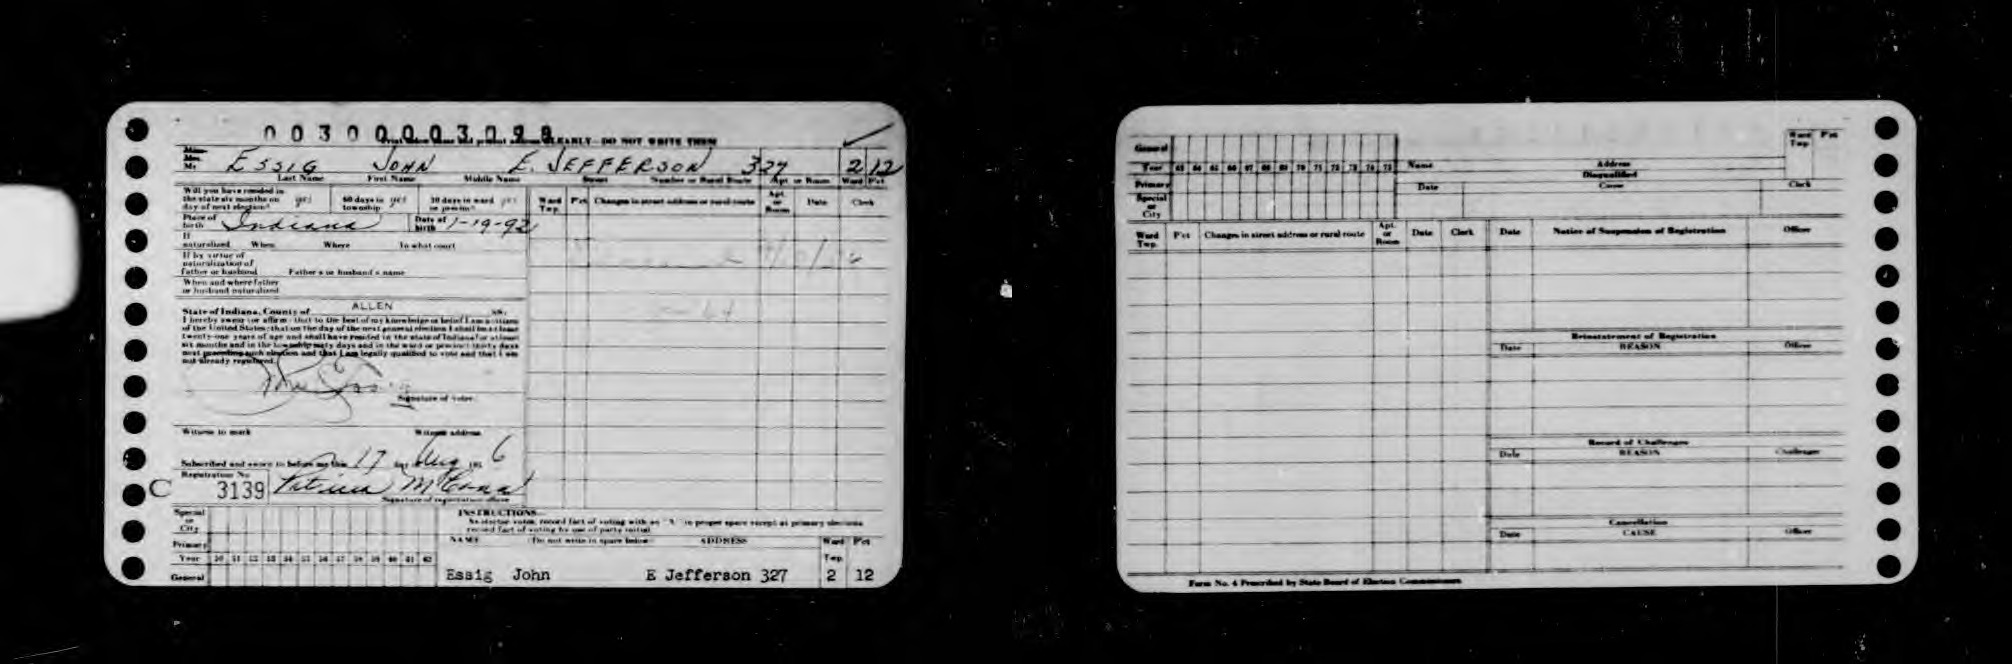 003000003098
Print below name and present address CLEARLY—DO NOT WRITE THEM
Miss
Mrs.
Mr. ESSIG JOHN E. JEFFERSON 327 2 12
Last Name First Name Middle Name Street Number or Rural Route Apt. or Room Ward P'ct
Will you have resided in
the state six months on
day of next election? yes
60 days in
township yes
30 days in ward
or precinct? yes
Place of
birth Indiana
Date of
birth 1-19-92
If
naturalized When Where In what court
If by virtue of
naturalization of
father or husband Father's or husband's name
When and where father
or husband naturalized
State of Indiana, County of ALLEN SS:
I hereby swear (or affirm) that to the best of my knowledge or belief I am a citizen
of the United States; that on the day of the next general election I shall be at least
twenty-one years of age and shall have resided in the state of Indiana for at least
six months and in the township sixty days and in the ward or precinct thirty days
next preceding such election and that I am legally qualified to vote and that I am
not already registered.
John Essig
Signature of voter
Witness to mark Witness address
Subscribed and sworn to before me this 17 day Aug 195 6
Registration No.
C 3139 Patricia
Signature of registration officer
Ward
Twp. P'ct Changes in street address or rural route Apt.
or
Room Date Clerk
64
Special
or
City
Primary
Year 50 51 52 53 54 55 56 57 58 59 60 61 62
General
INSTRUCTIONS—
As elector votes, record fact of voting with an "X" in proper space except at primary elections
record fact of voting by use of party initial
NAME (Do not write in space below) ADDRESS Ward
Twp. P'ct
Essig John E Jefferson 327 2 12
General
Year 63 64 65 66 67 68 69 70 71 72 73 74 75
Primary
Special
or
City
Name Address Ward
Twp. P'ct
Disqualified
Date Cause Clerk
Ward
Twp. P'ct Changes in street address or rural route Apt.
or
Room Date Clerk
Date Notice of Suspension of Registration Officer
Reinstatement of Registration
Date REASON Officer
Record of Challenges
Date REASON Challenger
Cancellation
Date CAUSE Officer
Form No. 4 Prescribed by State Board of Election Commissioners